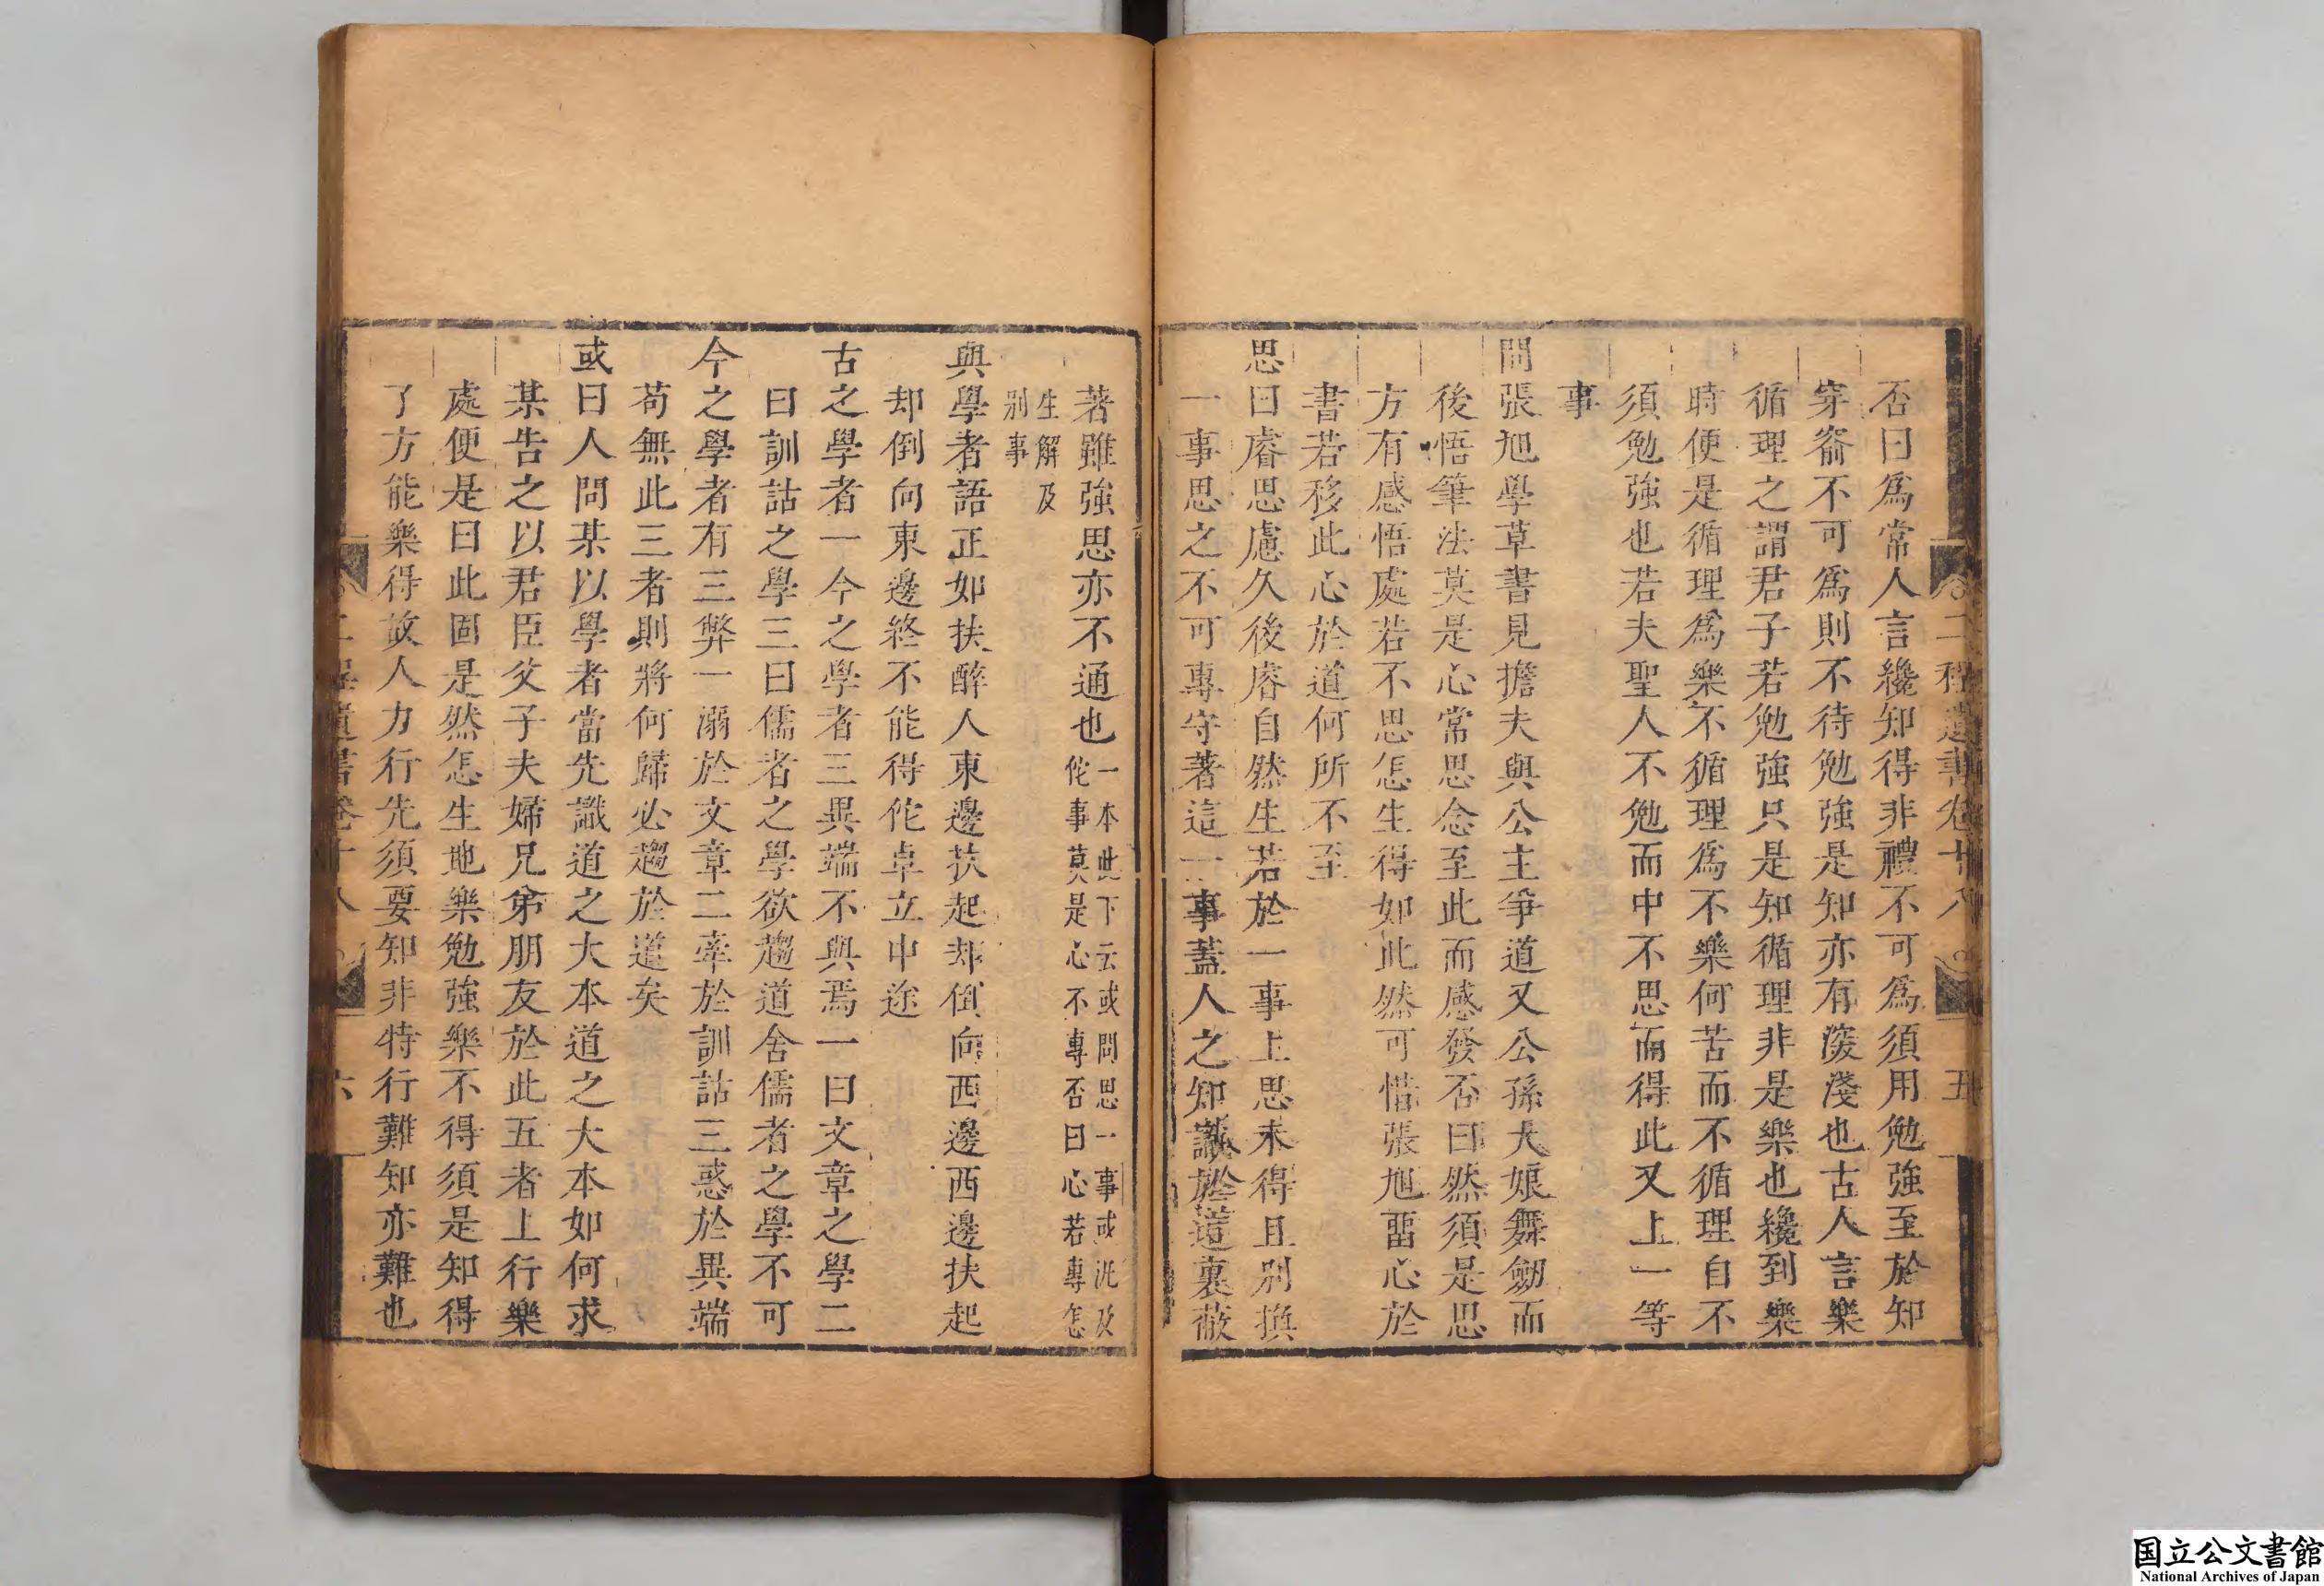 二程遺書卷十八
五
否曰爲常人言纔知得非禮不可爲須用勉強至於知
穿窬不可爲則不待勉強是知亦有深淺也古人言樂
循理之謂君子若勉強只是知循理非是樂也纔到樂
時便是循理爲樂不循理爲不樂何苦而不循理自不
須勉強也若夫聖人不勉而中不思而得此又上一等
事
問張旭學草書見擔夫與公主爭道又公孫大娘舞劒而
後悟筆法莫是心常思念至此而感發否曰然須是思
方有感悟處若不思怎生得如此然可惜張旭畱心於
書若移此心於道何所不至
思曰睿思慮久後睿自然生若於一事上思未得且別換
一事思之不可專守著這一事蓋人之知識於這裏蔽
著雖強思亦不通也一本此下云或問思一事或泛及
佗事莫是心不專否曰心若專怎
生解及
別事
與學者語正如扶醉人東邊扶起却倒向西邊西邊扶起
却倒向東邊終不能得佗卓立中途
古之學者一今之學者三異端不與焉一曰文章之學二
曰訓詁之學三曰儒者之學欲趨道舍儒者之學不可
今之學者有三弊一溺於文章二牽於訓詁三惑於異端
苟無此三者則將何歸必趨於道矣
或曰人問某以學者當先識道之大本道之大本如何求
某告之以君臣父子夫婦兄弟朋友於此五者上行樂
處便是曰此固是然怎生地樂勉強樂不得須是知得
了方能樂得故人力行先須要知非特行難知亦難也
二程遺書卷十八
六
国立公文書館
National Archives of Japan